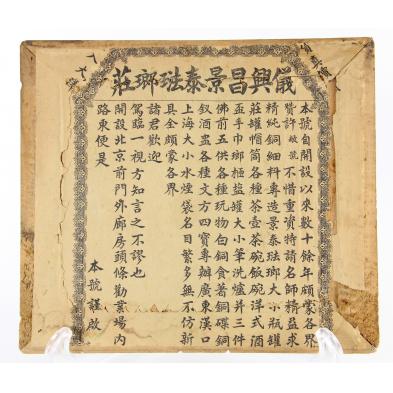 儀興昌景泰琺瑯莊
本號自開設以來數十餘年頗蒙各界
贊許敝號不惜重資特請名師精益求
精純銅細料專造景泰琺瑯大小瓶罐
莊罐帽筒各種茶壺茶碗飯碗洋式酒
盃手巾瑯盆罐大小筆洗爐并三件
佛前五供各種玩物白銅食著銅碟銅
釵酒盅各種文方四寶專辦廣東漢口
上海大小水煙袋名目繁多無不仿新
具全頗蒙各界
諸君歡迎
駕臨一視方知言之不謬也
開設北京前門外廊房頭條勸業場內
路東便是
本號謹啟